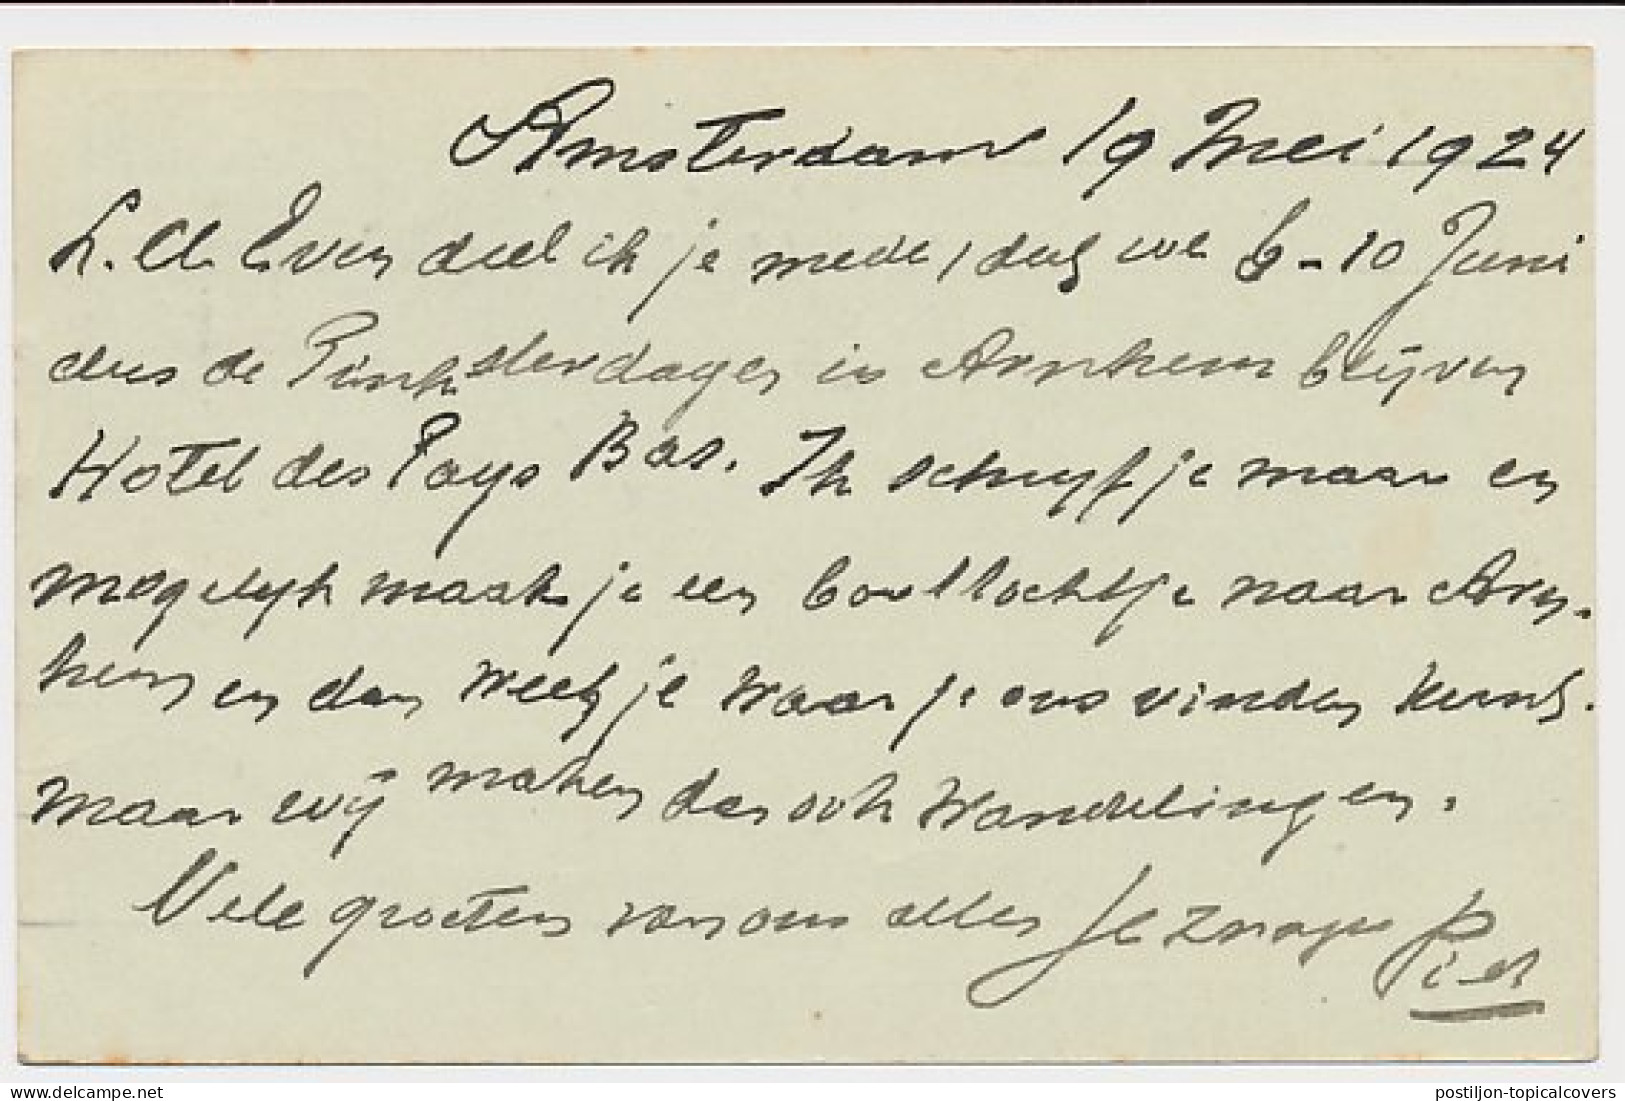 Amsterdam 19 Mei 1924
L. A. Even deel ik je mede, dat we 6-10 Juni
dus de Pinksterdagen in Arnhem blijven
Hotel des Pays Bas. Ik schrijf je maar en
mogelijk maak je een tochtje naar Arn-
hem en dan weet je waar je ons vinden kunt.
maar wij maken dan ook wandelingen.
Vele groeten van ons allen Je Piet
delcampe.net
postiljon-topicalcovers